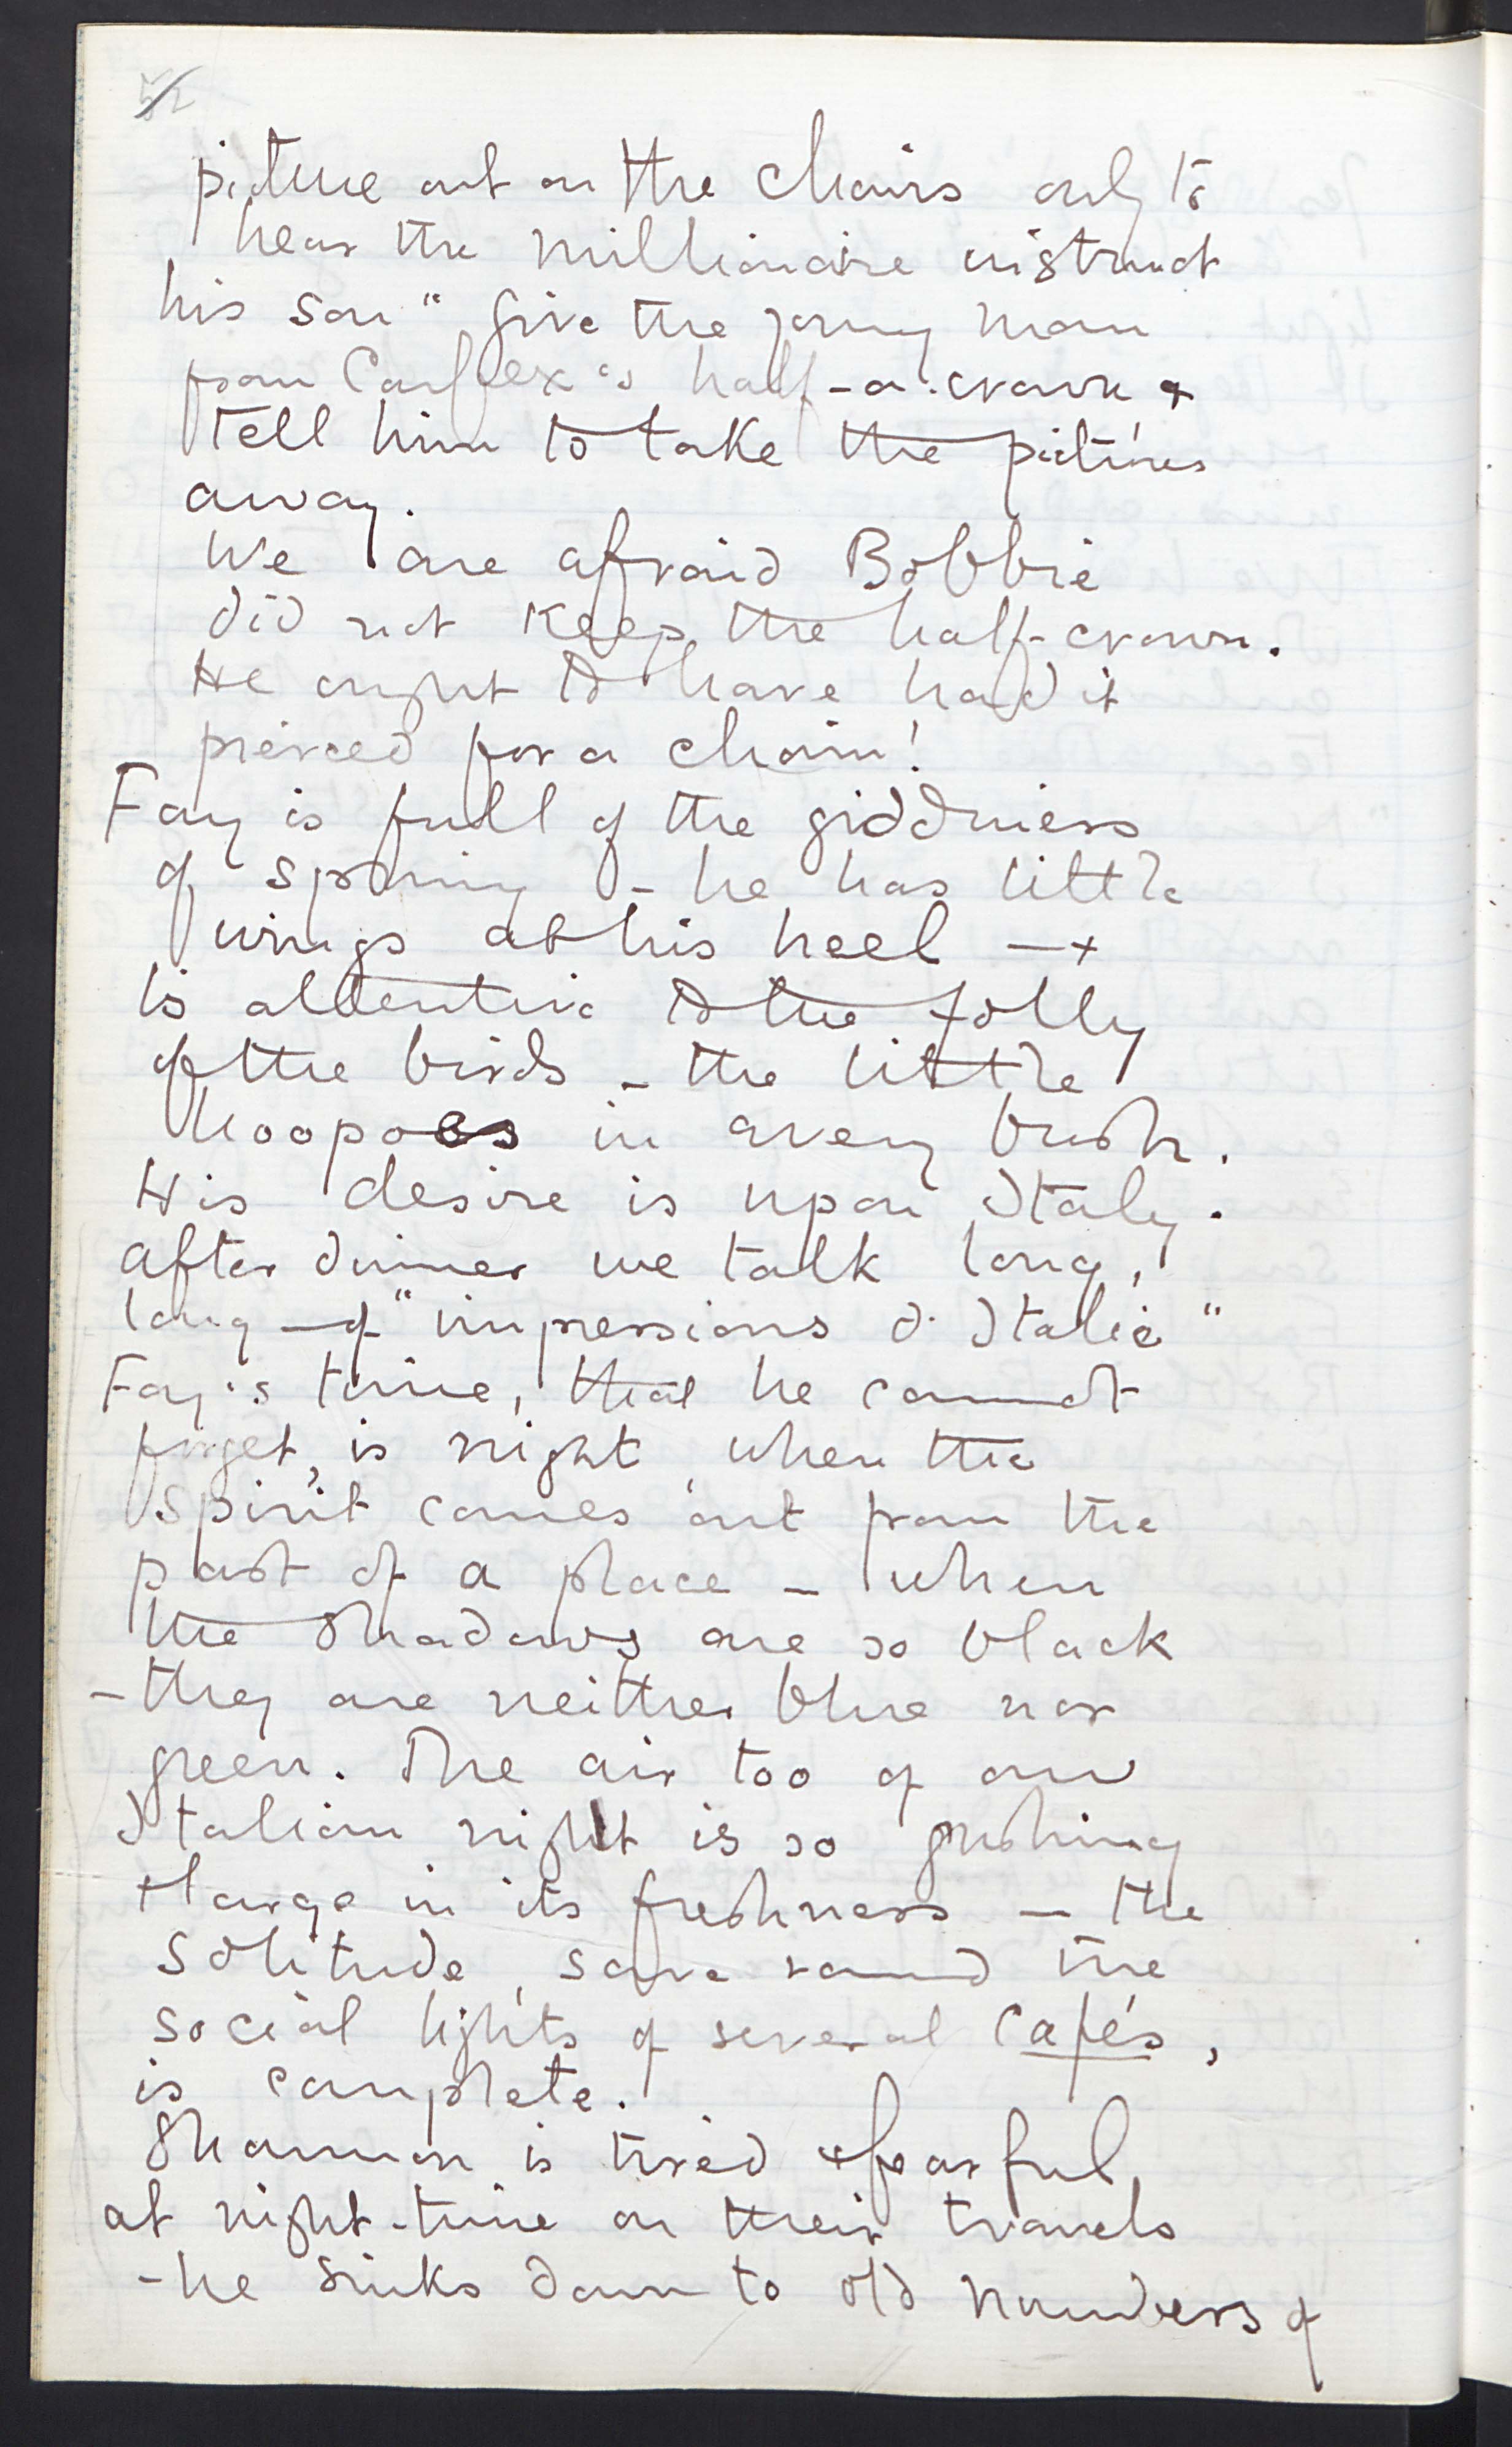 52
picture out on the chairs only to
hear the millionaire instruct
his son "give the young man
from Carfax's half-a-crown &
tell him to take the pictures
away.
We are afraid Bobbie
did not keep the half-crown.
He ought to have had it
pierced for a chain!
Fay is full of the giddiness
of spring - he has little
wings at his heel — &
is attentive to the folly
of the birds - the little
hoopoes in every bush.
His desire is upon Italy.
After dinner we talk long,
long — of "impressions d'Italie"
Fay's time, that he cannot
forget, is night when the
spirit comes out from the
past of a place - when
the shadows are so black
- they are neither blue nor
green. The air too of an
Italian night is so gushing
& large in its freshness — the
solitude, save round the
social lights of several cafés,
is complete.
Shannon is tired & fearful
at night-time on their travels
- he sinks down to old numbers of